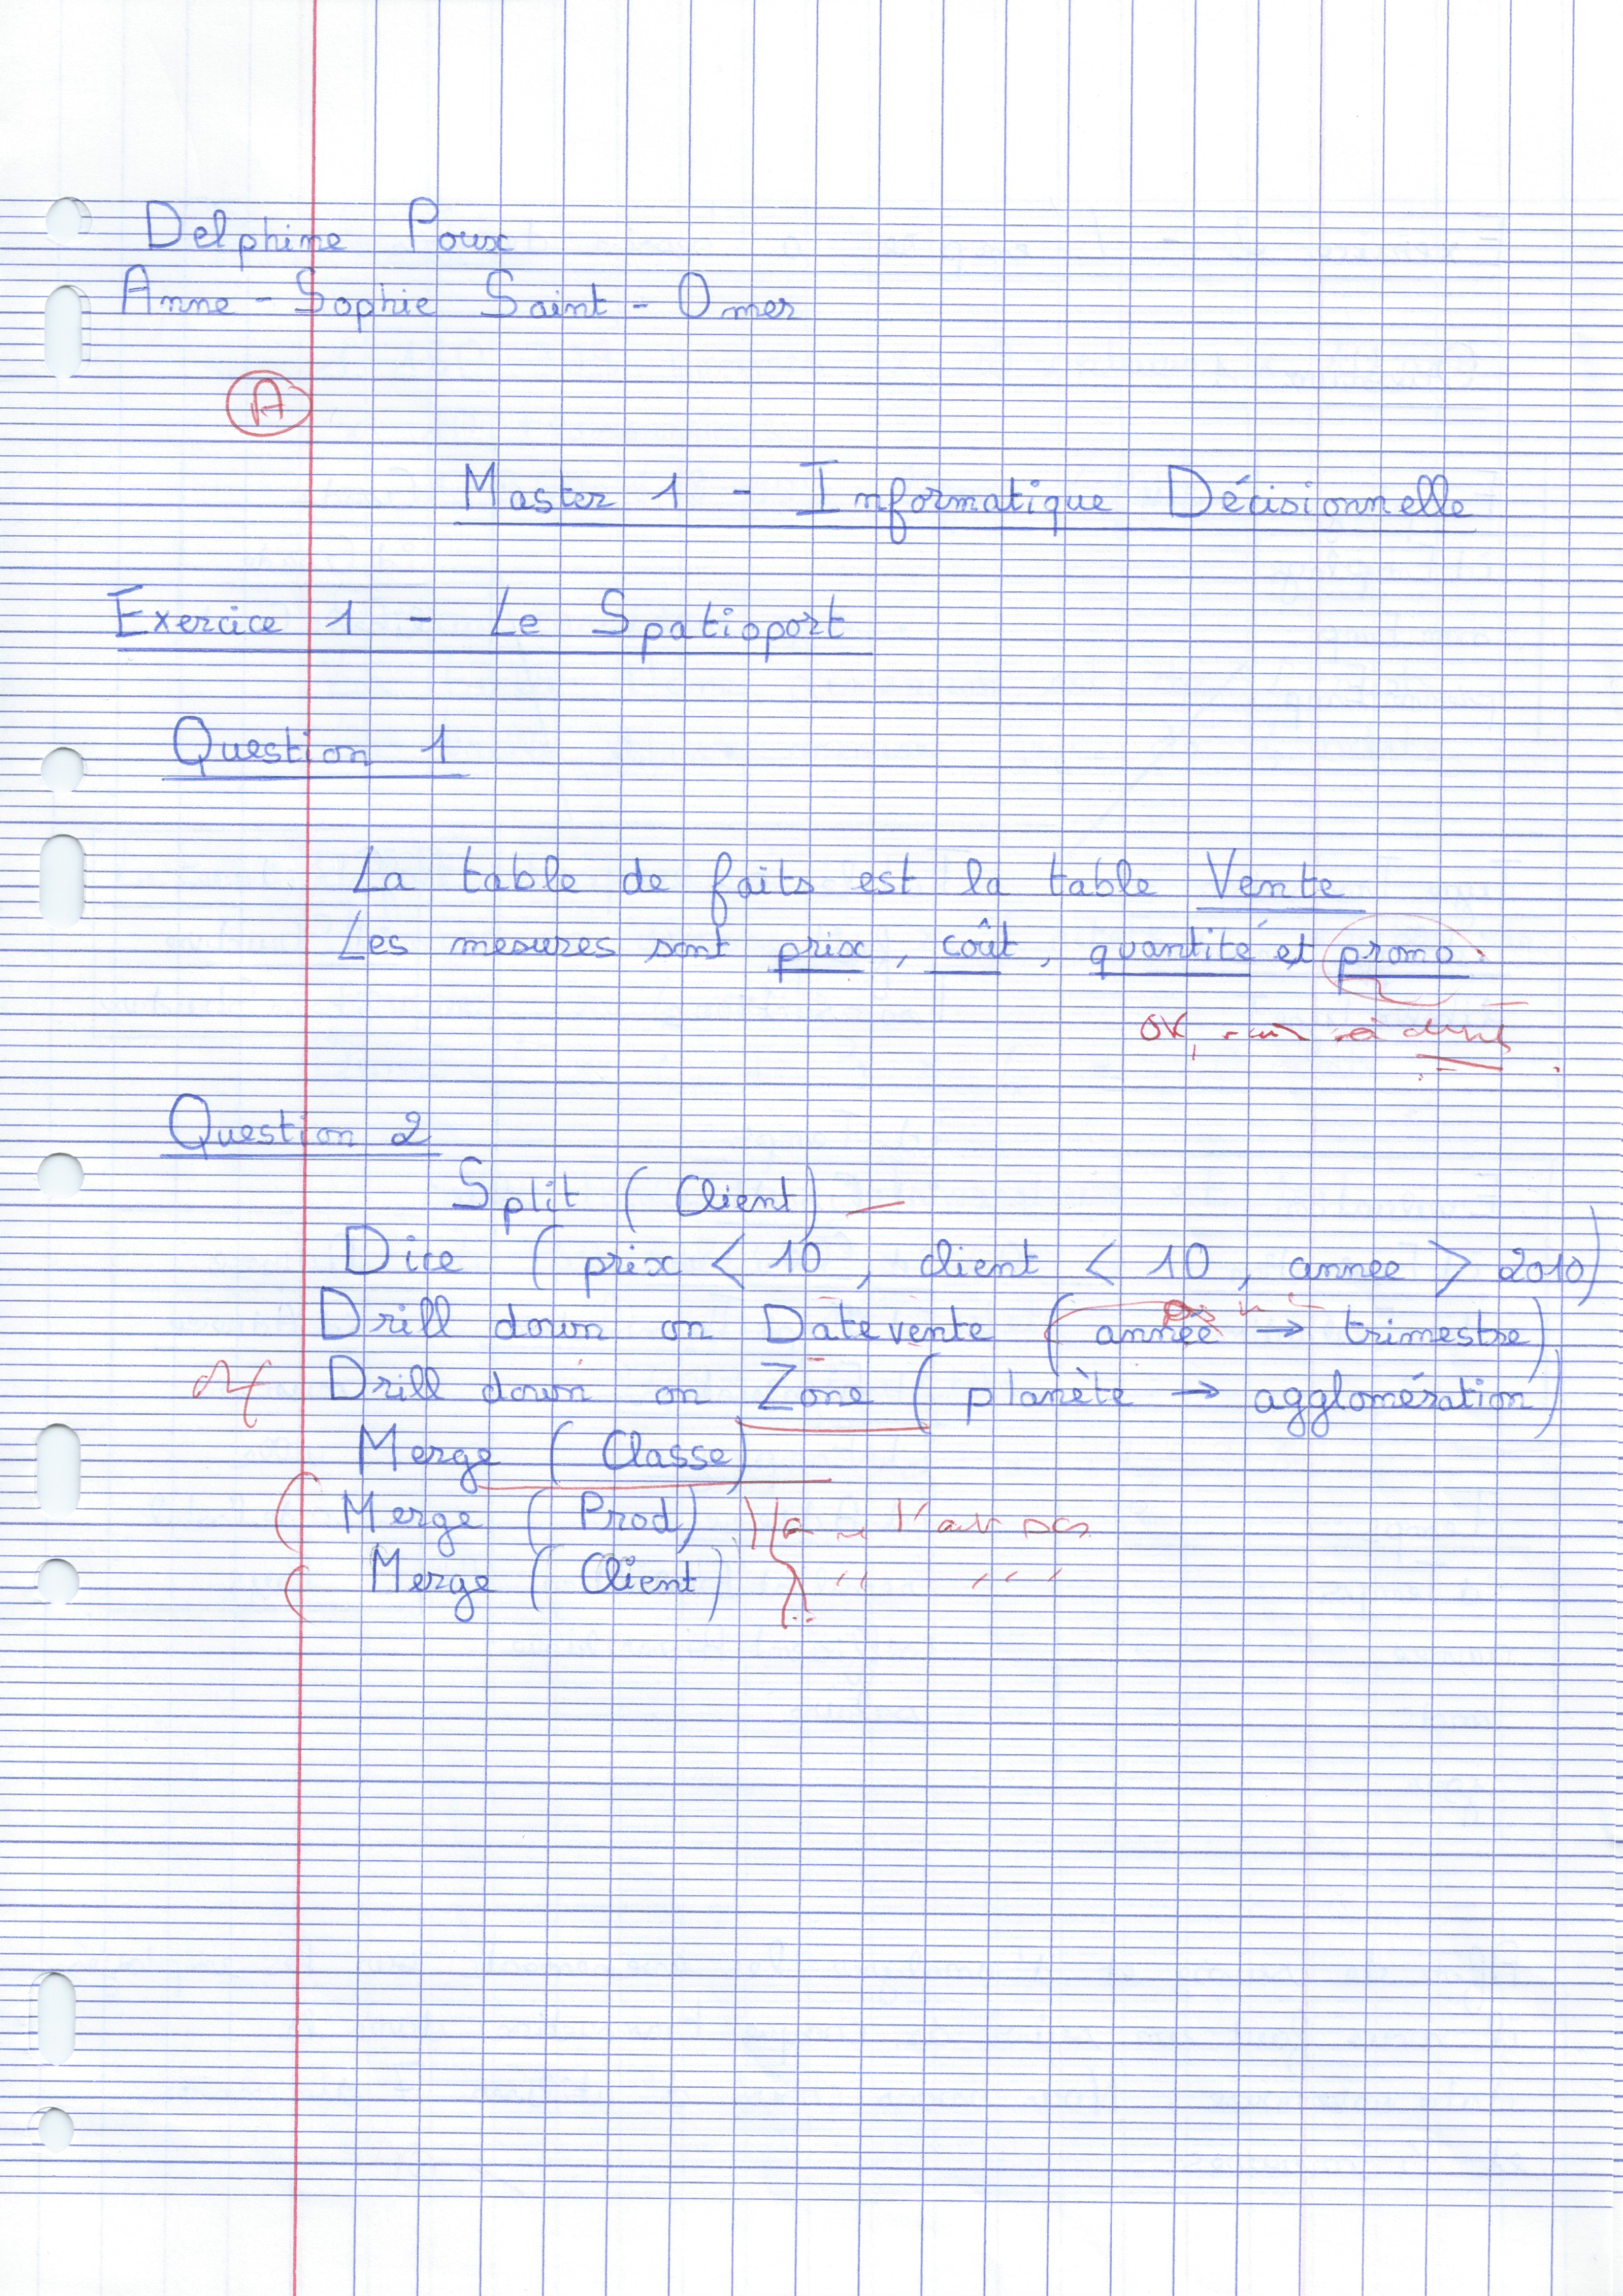 Delphine Poux
Anne-Sophie Saint-Omer
A
Master 1 - Informatique Décisionnelle
Exercice 1 - Le Spatioport
Question 1
La table de faits est la table Vente
Les mesures sont prix, coût, quantité et promo.
OK,
Question 2
Split (Client)
Dice (prix < 10, client < 10, année > 2010)
Drill down on Datevente (année → trimestre)
Drill down on Zone (planète → agglomération)
Merge (Classe)
Merge (Prod)
Merge (Client)